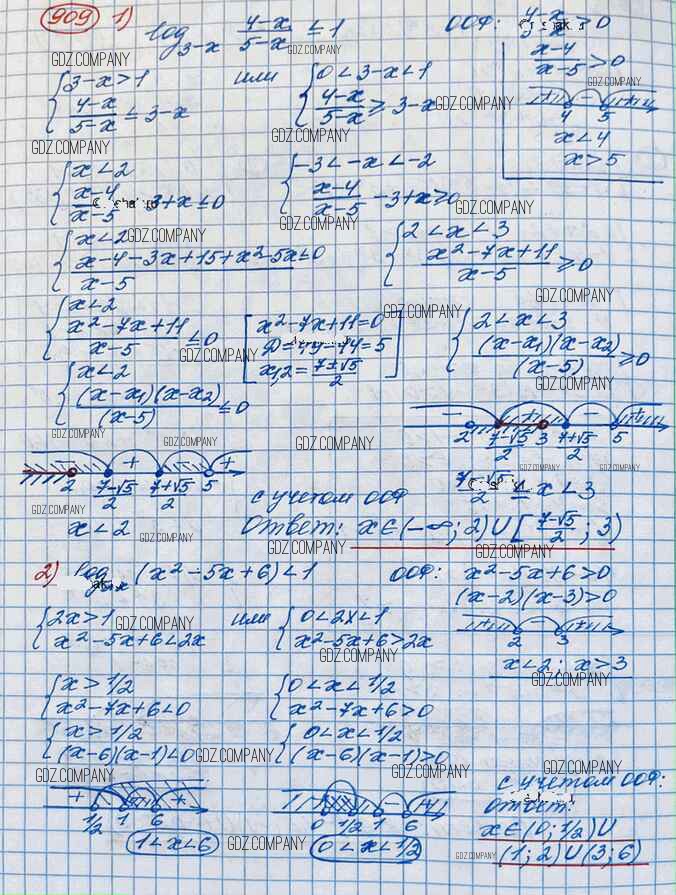 909 1) log₃₋ₓ (4-x)/(5-x) ≤ 1
ООФ: > 0
(x-4)/(x-5) > 0
4 5
x < 4
x > 5
{ 3-x > 1
(4-x)/(5-x) ≤ 3-x
или
{ 0 < 3-x < 1
(4-x)/(5-x) ≥ 3-x
{ x < 2
(x-4)/(x-5) -3+x ≤ 0
{ -3 < -x < -2
(x-4)/(x-5) -3+x ≥ 0
{ x < 2
(x-4-3x+15+x²-5x)/(x-5) ≤ 0
{ 2 < x < 3
(x²-7x+11)/(x-5) ≥ 0
{ x < 2
(x²-7x+11)/(x-5) ≤ 0
[ x²-7x+11=0
D=49-44=5
x₁,₂=(7±√5)/2 ]
{ 2 < x < 3
(x-x₁)(x-x₂)/(x-5) ≥ 0
{ x < 2
(x-x₁)(x-x₂)/(x-5) ≤ 0
2 (7-√5)/2 3 (7+√5)/2 5
2 (7-√5)/2 (7+√5)/2 5
x < 2
(7-√5)/2 ≤ x < 3
с учетом ООФ
Ответ: x∈(-∞; 2)∪[(7-√5)/2; 3)
2) log (x²-5x+6) < 1
ООФ: x²-5x+6>0
(x-2)(x-3)>0
2 3
x<2; x>3
{ 2x>1
x²-5x+6<2x
или
{ 0<2x<1
x²-5x+6>2x
{ x>1/2
x²-7x+6<0
{ 0<x<1/2
x²-7x+6>0
{ x>1/2
(x-6)(x-1)<0
{ 0<x<1/2
(x-6)(x-1)>0
1/2 1 6
1<x<6
0 1/2 1 6
0<x<1/2
с учетом ООФ:
ответ:
x∈(0; 1/2)∪
(1; 2)∪(3; 6)
GDZ.COMPANY